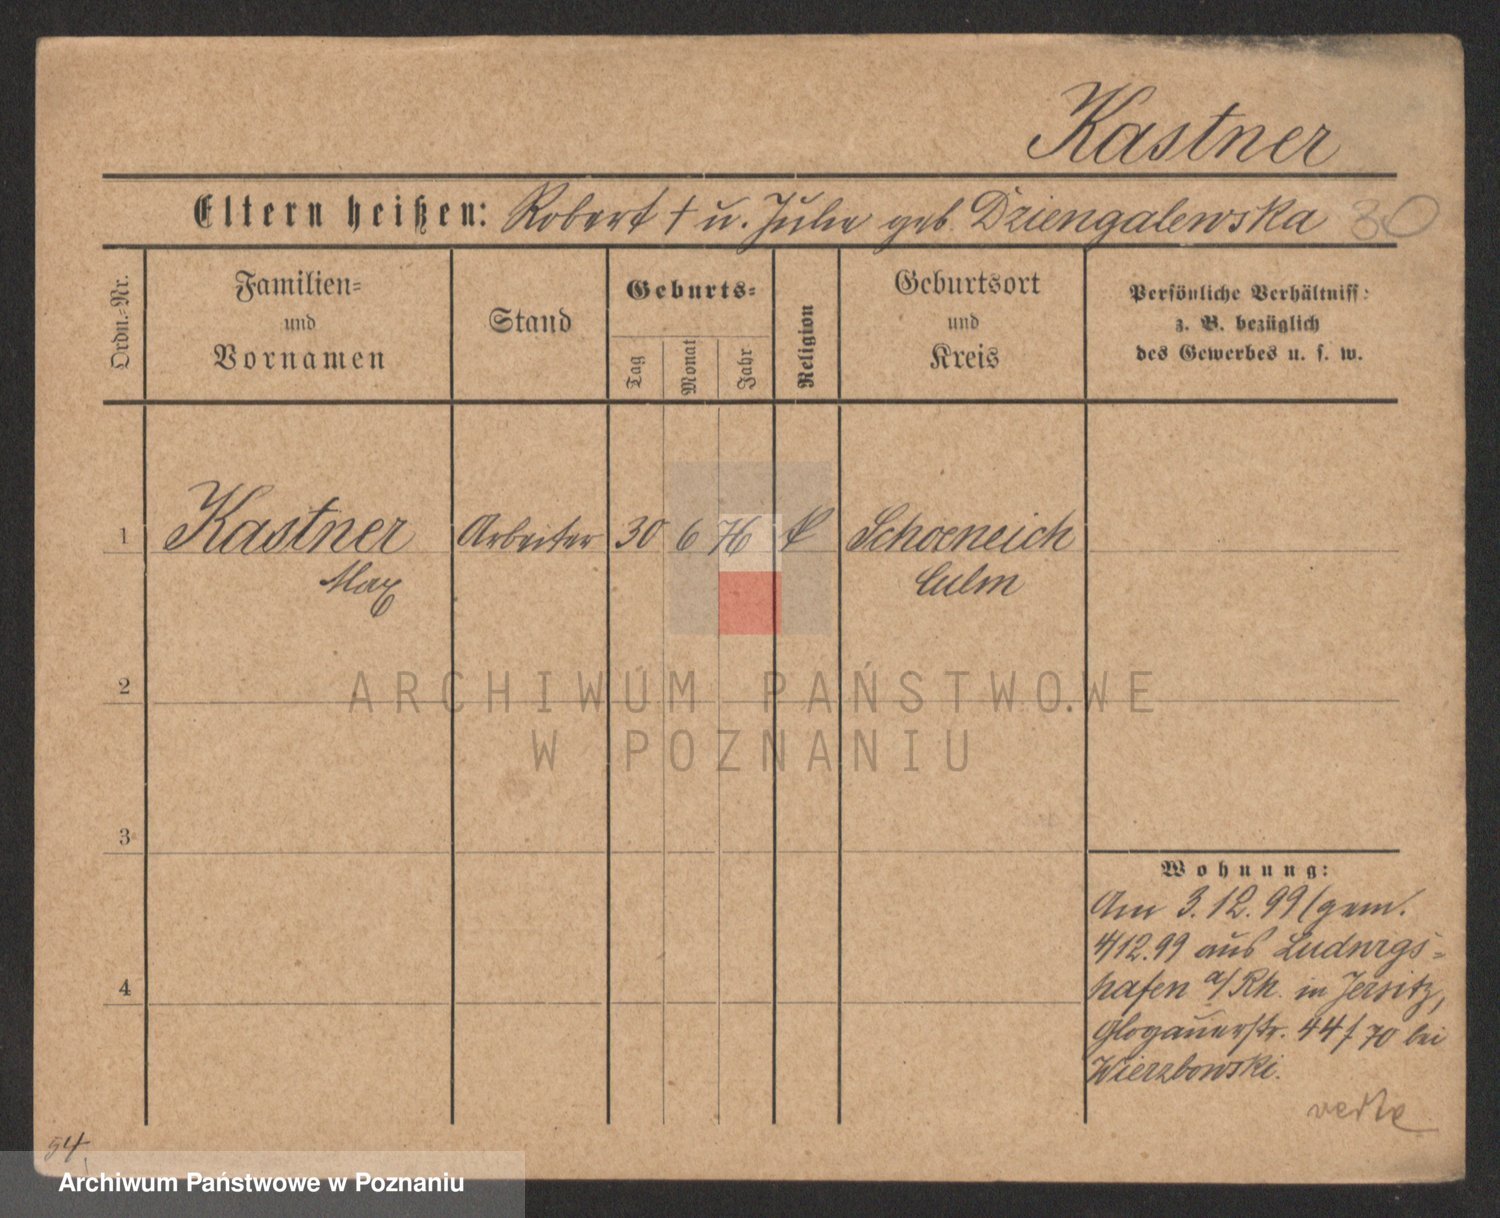 Kastner
Eltern heißen: Robert † u. Julie geb. Dziengalewska 30
Ordn.-Nr.
Familien- und Vornamen
Stand
Geburts-
Tag Monat Jahr
Religion
Geburtsort und Kreis
Persönliche Verhältniss:
z. B. bezüglich
des Gewerbes u. s. w.
1 Kastner Arbeiter 30 6 76 Schoeneich
Max Culm
2
ARCHIWUM PAŃSTWOWE
W POZNANIU
3
Wohnung:
Am 3.12.99 (gem.
4/12.99 aus Ludwigs-
4 hafen a/Rh. in Jersitz,
Glogauerstr. 44/70 bei
Wierzbowski.
verte
54
Archiwum Państwowe w Poznaniu